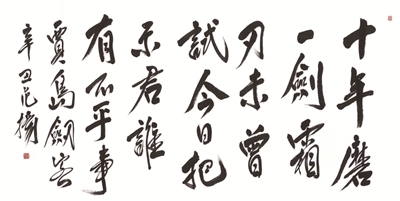 十年磨
一劍霜
刃未曾
試今日把
示君誰
有不平事
賈島劍客
辛丑